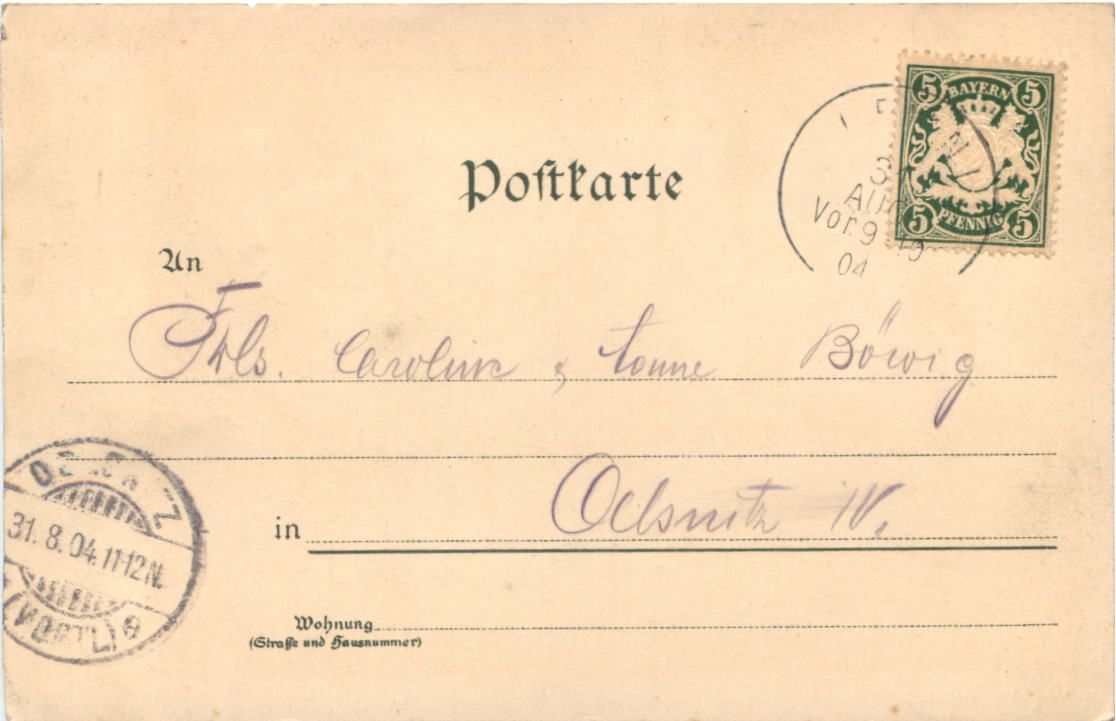 5 BAYERN 5
5 PFENNIG 5
Postkarte
Vor. 9
04
An
Frls. Caroline & Böwig
in Oelsnitz i/V.
31. 8. 04. 11-12 N.
(VOGTL)
Wohnung
(Straße und Hausnummer)